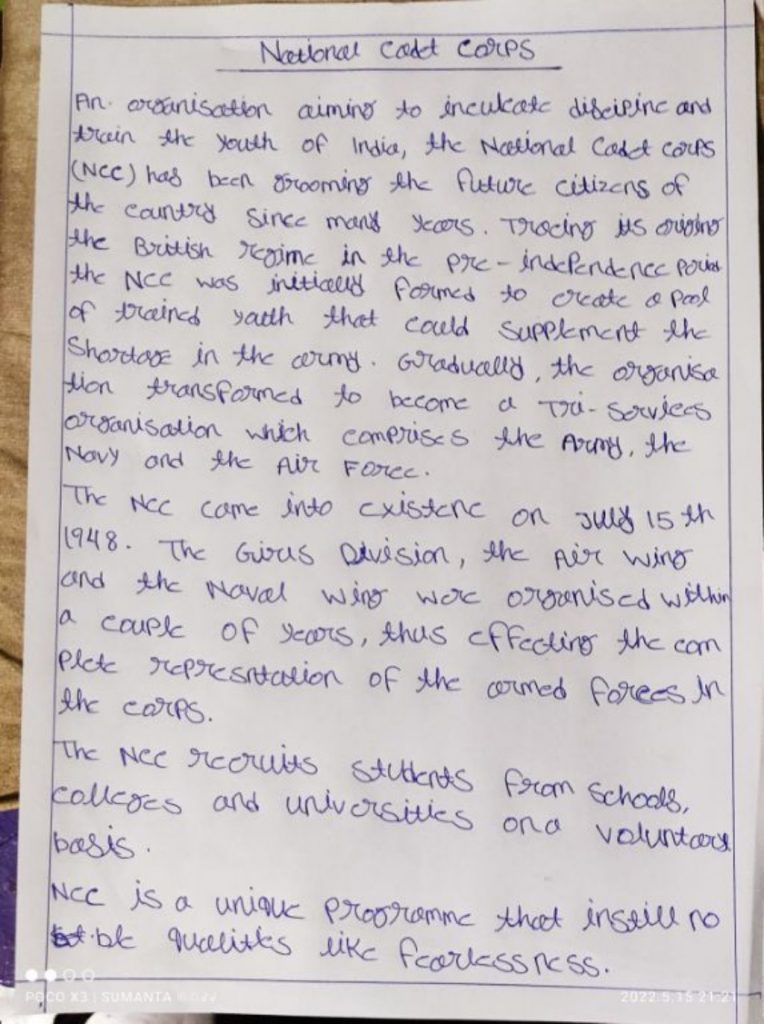 National Cadet Corps
An organisation aiming to inculcate discipline and
train the youth of India, the National Cadet corps
(NCC) has been grooming the future citizens of
the country since many years. Tracing its origing
the British regime in the pre-independence period
the NCC was initially formed to create a pool
of trained youth that could supplement the
Shortage in the army. Gradually, the organisa
tion transformed to become a Tri-Services
organisation which comprises the Army, the
Navy and the Air Force.
The NCC came into existenc on July 15 th
1948. The Girls Division, the Air wing
and the Naval wing were organised within
a couple of years, thus effecting the com
plete represntation of the armed forces in
the corps.
The NCC recruits students from schools,
colleges and universities on a voluntary
basis.
NCC is a unique programme that instill no
ble qualities like fearlessness.
POCO X3 | SUMANTA
2022.5.15 21:21